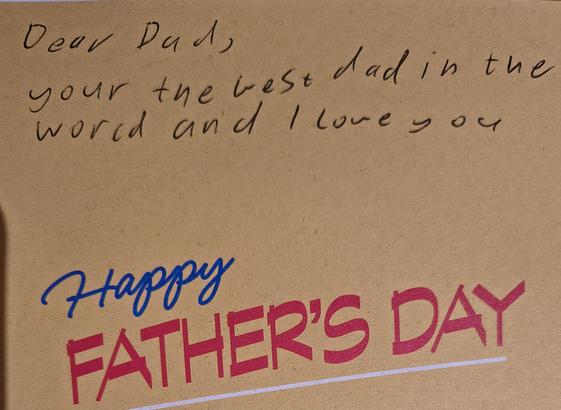 Dear Dad,
your the best dad in the
world and I love you
Happy
FATHER'S DAY